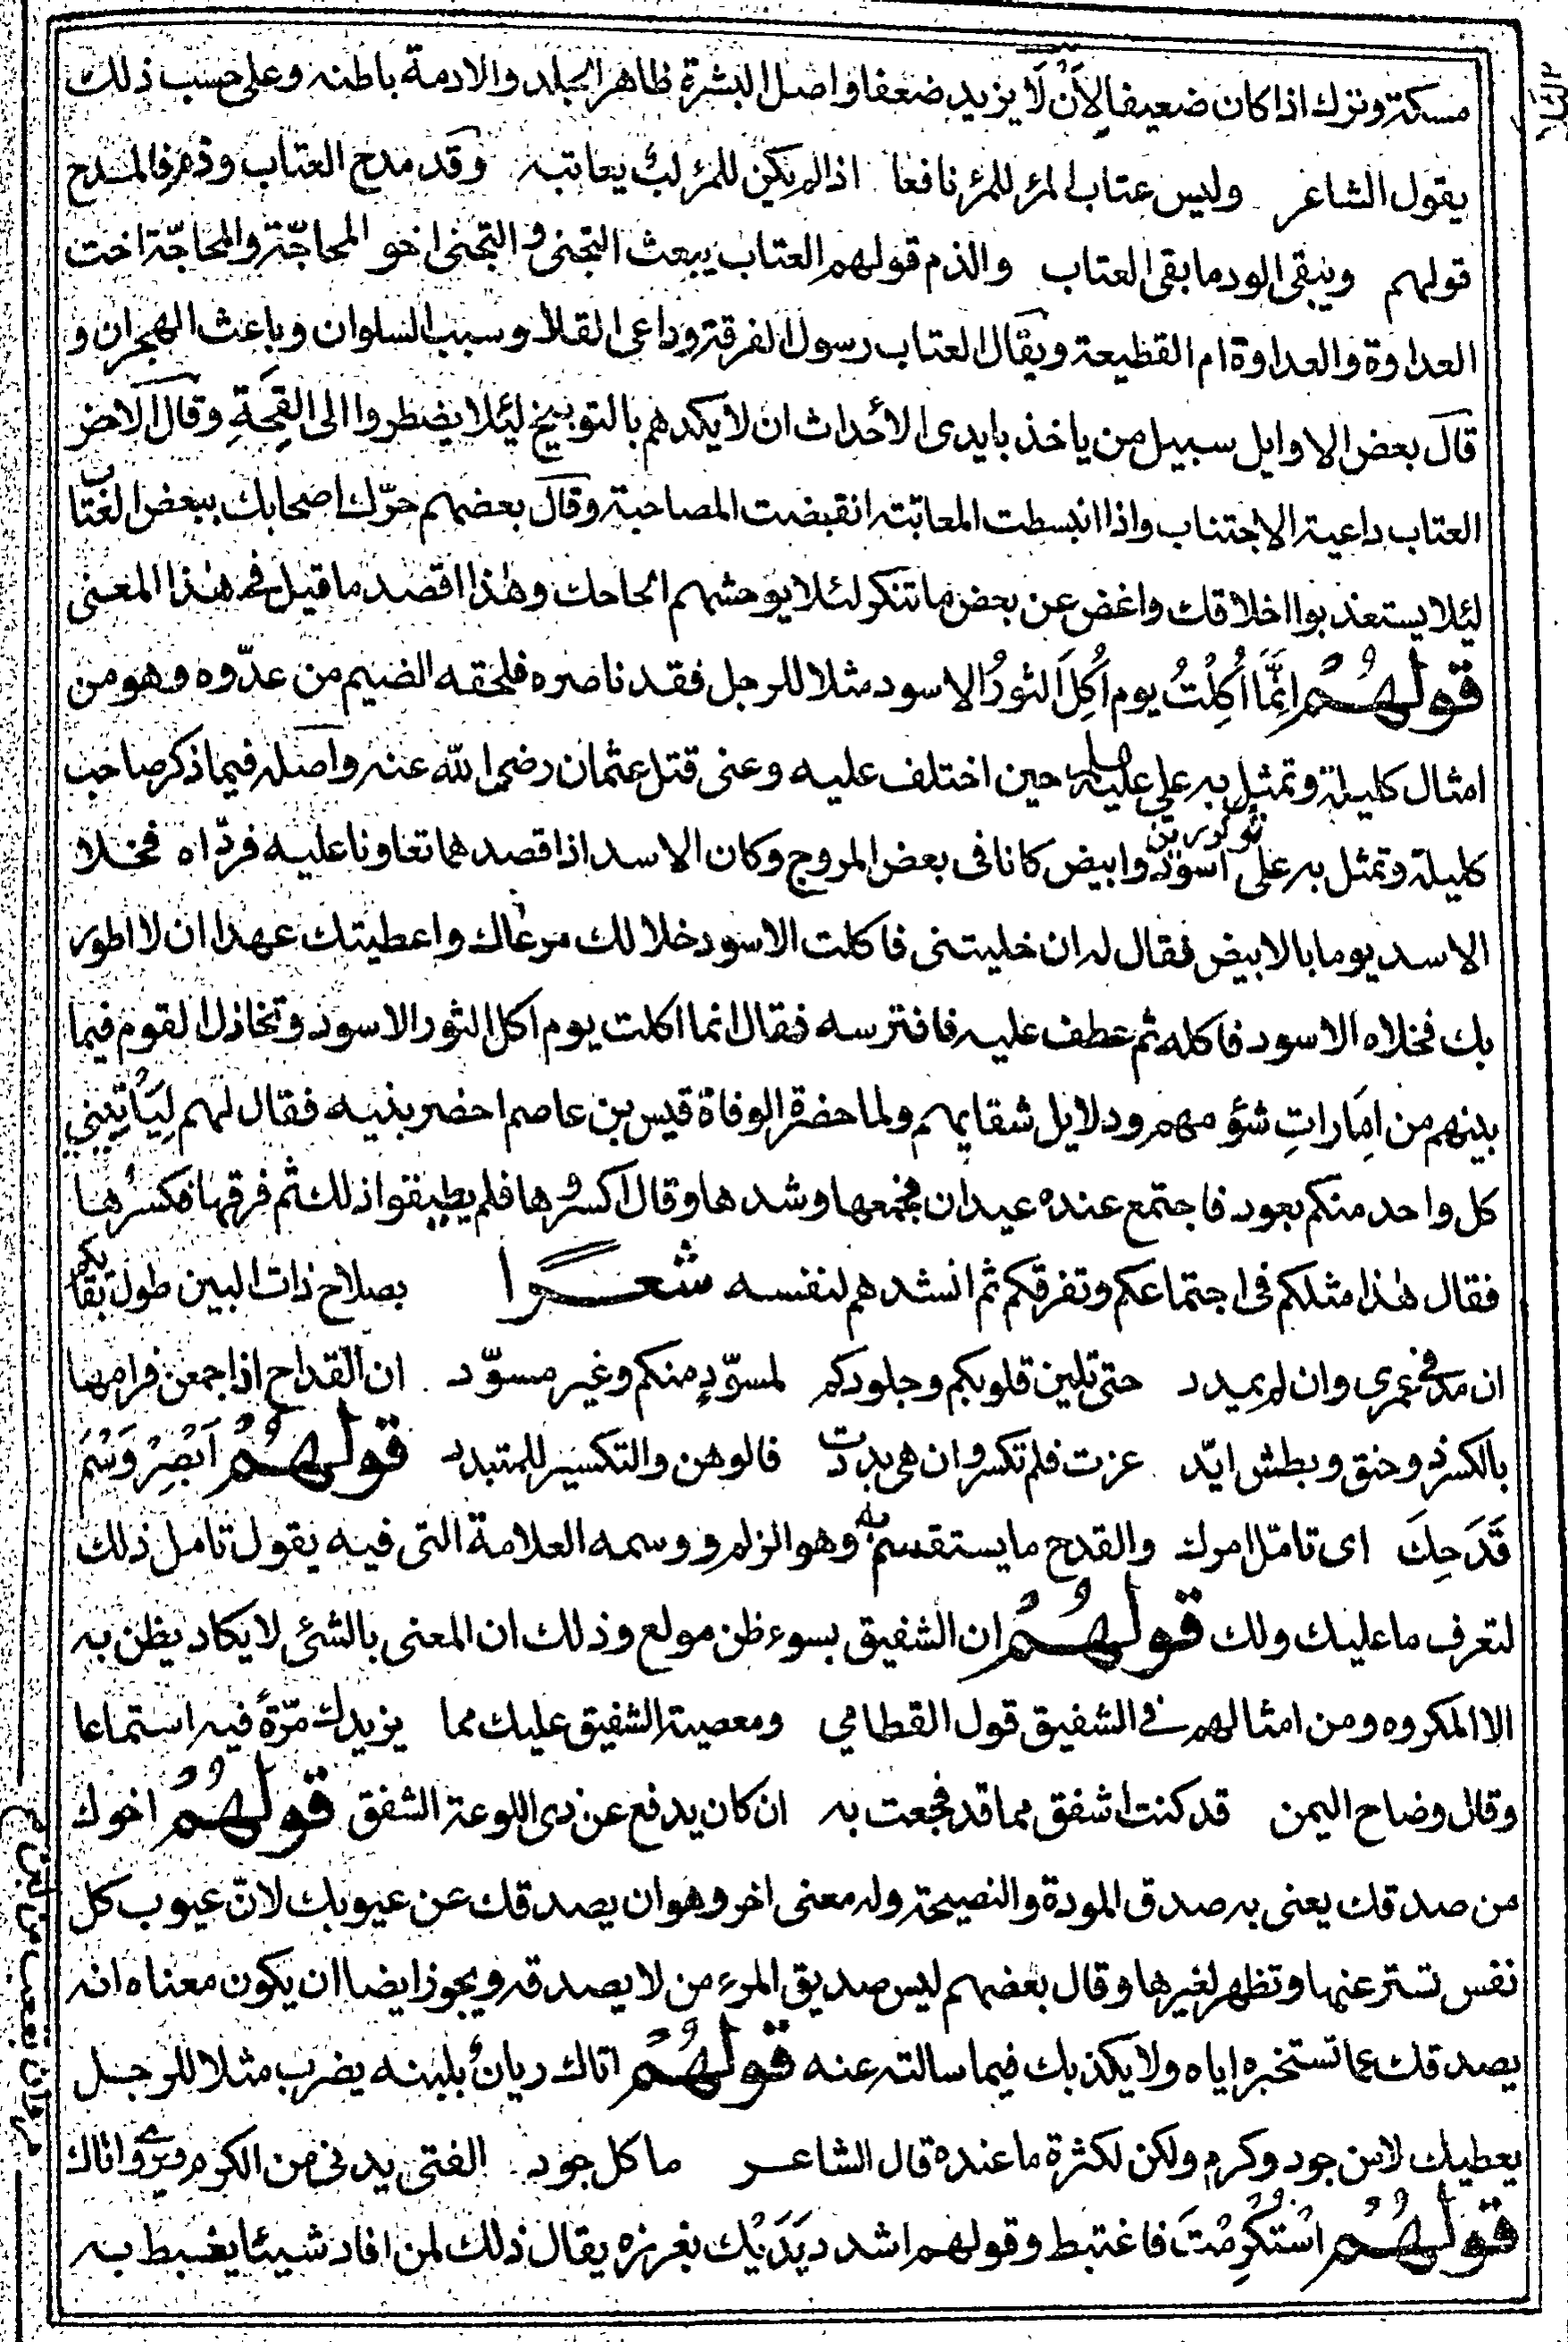 مسكة وترك اذا كان ضعيفا لِأَنْ لَا يزيد ضعفا واصل البشرة ظاهر الجلد والادمة باطنه وعلى حسب ذلك
يقول الشاعر وليس عتاب المرٔ للمرٔ نافعا اذا لم يكن للمرٔ لبٌ يعاتبه وقد مدح العتاب وذم فالمدح
قولهم ويبقى الود ما بقى العتاب والذم قولهم العتاب يبعث التجنى و التجنى اخو المحاجّة والمحاجّة اخت
العداوة والعداوة ام القطيعة ويقال العتاب رسول الفرقة وداعى القلا وسبب السلوان وباعث الهجران و
قال بعض الاوايل سبيل من ياخذ بايدى الأحداث ان لا يكدهم بالتوبيخ لئلا يضطروا الى القِحَةِ وقال الاخر
العتاب داعية الاجتناب واذا انبسطت المعاتبة انقبضت المصاحبة وقال بعضهم حرّك اصحابك ببعض العتاب
لئلا يستعذبوا اخلاقك واغض عن بعض ما تنكر لئلا يوحشهم الحاحك وهذا اقصد ما قيل فى هذا المعنى
قولهُمْ اِنَّمَا اُكِلْتُ يوم اُكِلَ الثورُ الاسود مثلا للرجل فقد ناصره فلحقه الضيم من عدّوه وهو من
امثال كليلة وتمثل به على عليه حين اختلف عليه وعنى قتل عثمان رضى الله عنه واصله فيما ذكر صاحب
كليلة وتمثل به على اسود وابيض كانا فى بعض المروج وكان الاسد اذا قصدهما تعاونا عليه فردّاه فخلا
الاسد يوما بالابيض فقال له ان خليتنى فاكلت الاسود خلا لك مرعاك واعطيتك عهدا ان لا اطور
بك فخلاه الاسود فاكله ثم عطف عليه فافترسه فقال انما اكلت يوم اكل الثور الاسود وتخاذل القوم فيما
بينهم من اِمَاراتِ شؤمهم ودلايل شقايهم ولما حضرة الوفاة قيس بن عاصم احضر بنيه فقال لهم لِيَأتِيَنِي
كل واحد منكم بعود فاجتمع عنده عيدان فجمعها وشدها وقال اكسروها فلم يطيقوا ذلك ثم فرقها فكسرها
فقال هذا مثلكم فى اجتماعكم وتفرقكم ثم انشدهم لنفسه شعرا بصلاح ذات البين طول بقايكم
ان مد فى عمرى وان لم يمدد حتى تلين قلوبكم وجلودكم لمسوّدٍ منكم وغير مسوّد ان القداح اذا جمعن فرامها
بالكسر ذو حنق وبطش ايّد عزت فلم تكسر وان هى بددت فالوهن والتكسير للمتبدد قولهُمْ اَبْصِرْ وَسْمَ
قَدَحِكَ اى تامّل امرك والقدح ما يستقسم به وهو الزلم ووسمه العلامة التى فيه يقول تامل ذلك
لتعرف ما عليك ولك قولهُمْ ان الشفيق بسوء ظن مولع وذلك ان المعنى بالشئ لا يكاد يظن به
الا المكروه ومن امثالهم فى الشفيق قول القطامي ومعصية الشفيق عليك مما يزيدك مرّةً فيه استماعا
وقال وضاح اليمن قد كنت اشفق مما قد فجعت به ان كان يدفع عن ذى اللوعة الشفق قولهُمْ اخوك
من صدقك يعنى به صدق المودة والنصيحة وله معنى اخر وهو ان يصدقك عن عيوبك لانّ عيوب كل
نفس تستر عنها وتظهر لغيرها وقال بعضهم ليس صديق المرء من لا يصدقه ويجوز ايضا ان يكون معناه انه
يصدقك عما تستخبره اياه ولا يكذبك فيما سالته عنه قولهُمْ اتاك ريانُ بلبنه يضرب مثلا للرجل
يعطيك لا من جود وكرم ولكن لكثرة ما عنده قال الشاعر ما كل جود الفتى يدنى من الكرم واتاك
قولهُمْ اسْتُكْرِمْتَ فاغتبط وقولهم اشدد يَدَيْك بغرزه يقال ذلك لمن افاد شيئا يغبط به